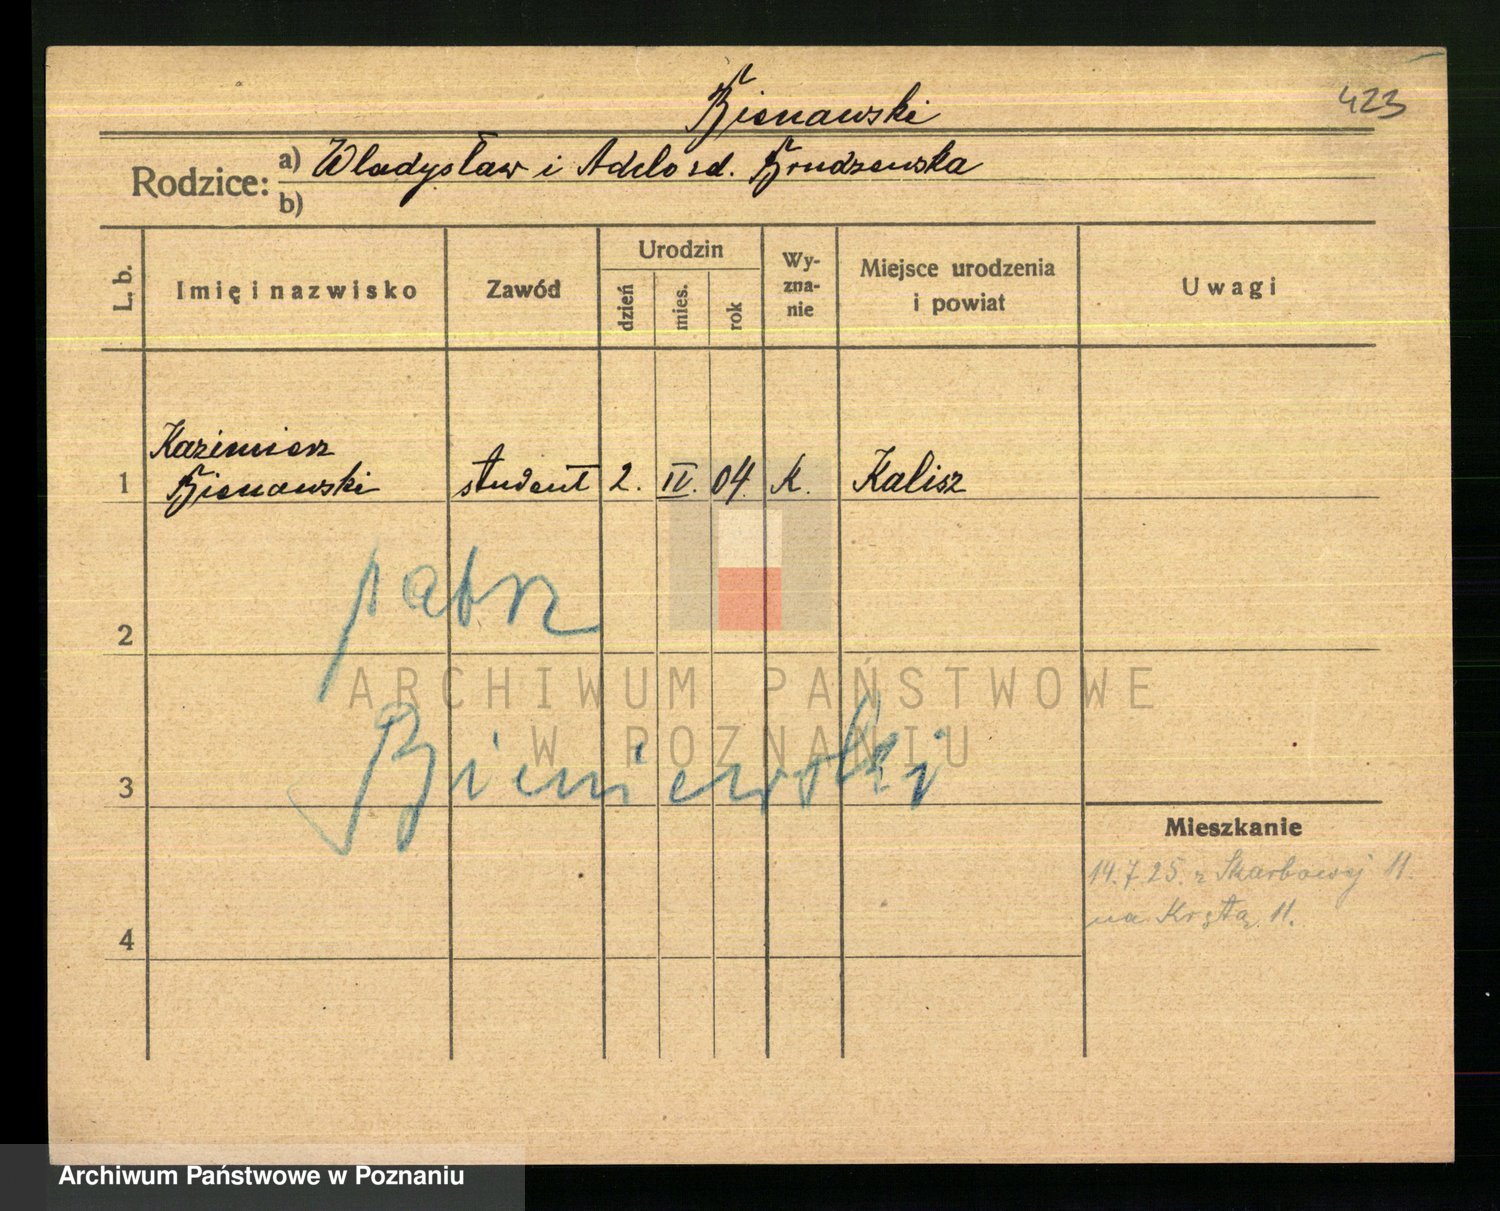 423
Bienawski
Rodzice: a) Władysław i Adela zd. Brudzewska
b)
L. b.
Imię i nazwisko
Zawód
Urodzin
dzień
mies.
rok
Wy-
zna-
nie
Miejsce urodzenia
i powiat
Uwagi
Kazimierz
1 Bienawski student 2. IV. 04. K. Kalisz
patrz
2
ARCHIWUM PAŃSTWOWE
W POZNANIU
Bieniewski
3
Mieszkanie
14.7.25. z Skarbowej 11.
na Krętą 11.
4
Archiwum Państwowe w Poznaniu